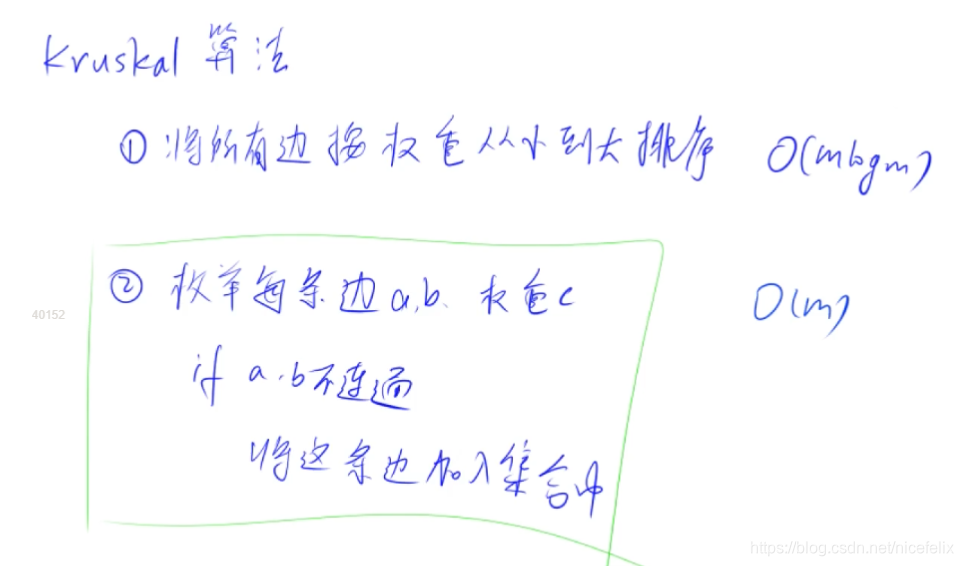 Kruskal 算法
① 将所有边按权重从小到大排序 O(mlogm)
② 枚举每条边a,b、权重c O(m)
40152
if a,b不连通
将这条边加入集合中
https://blog.csdn.net/nicefelix